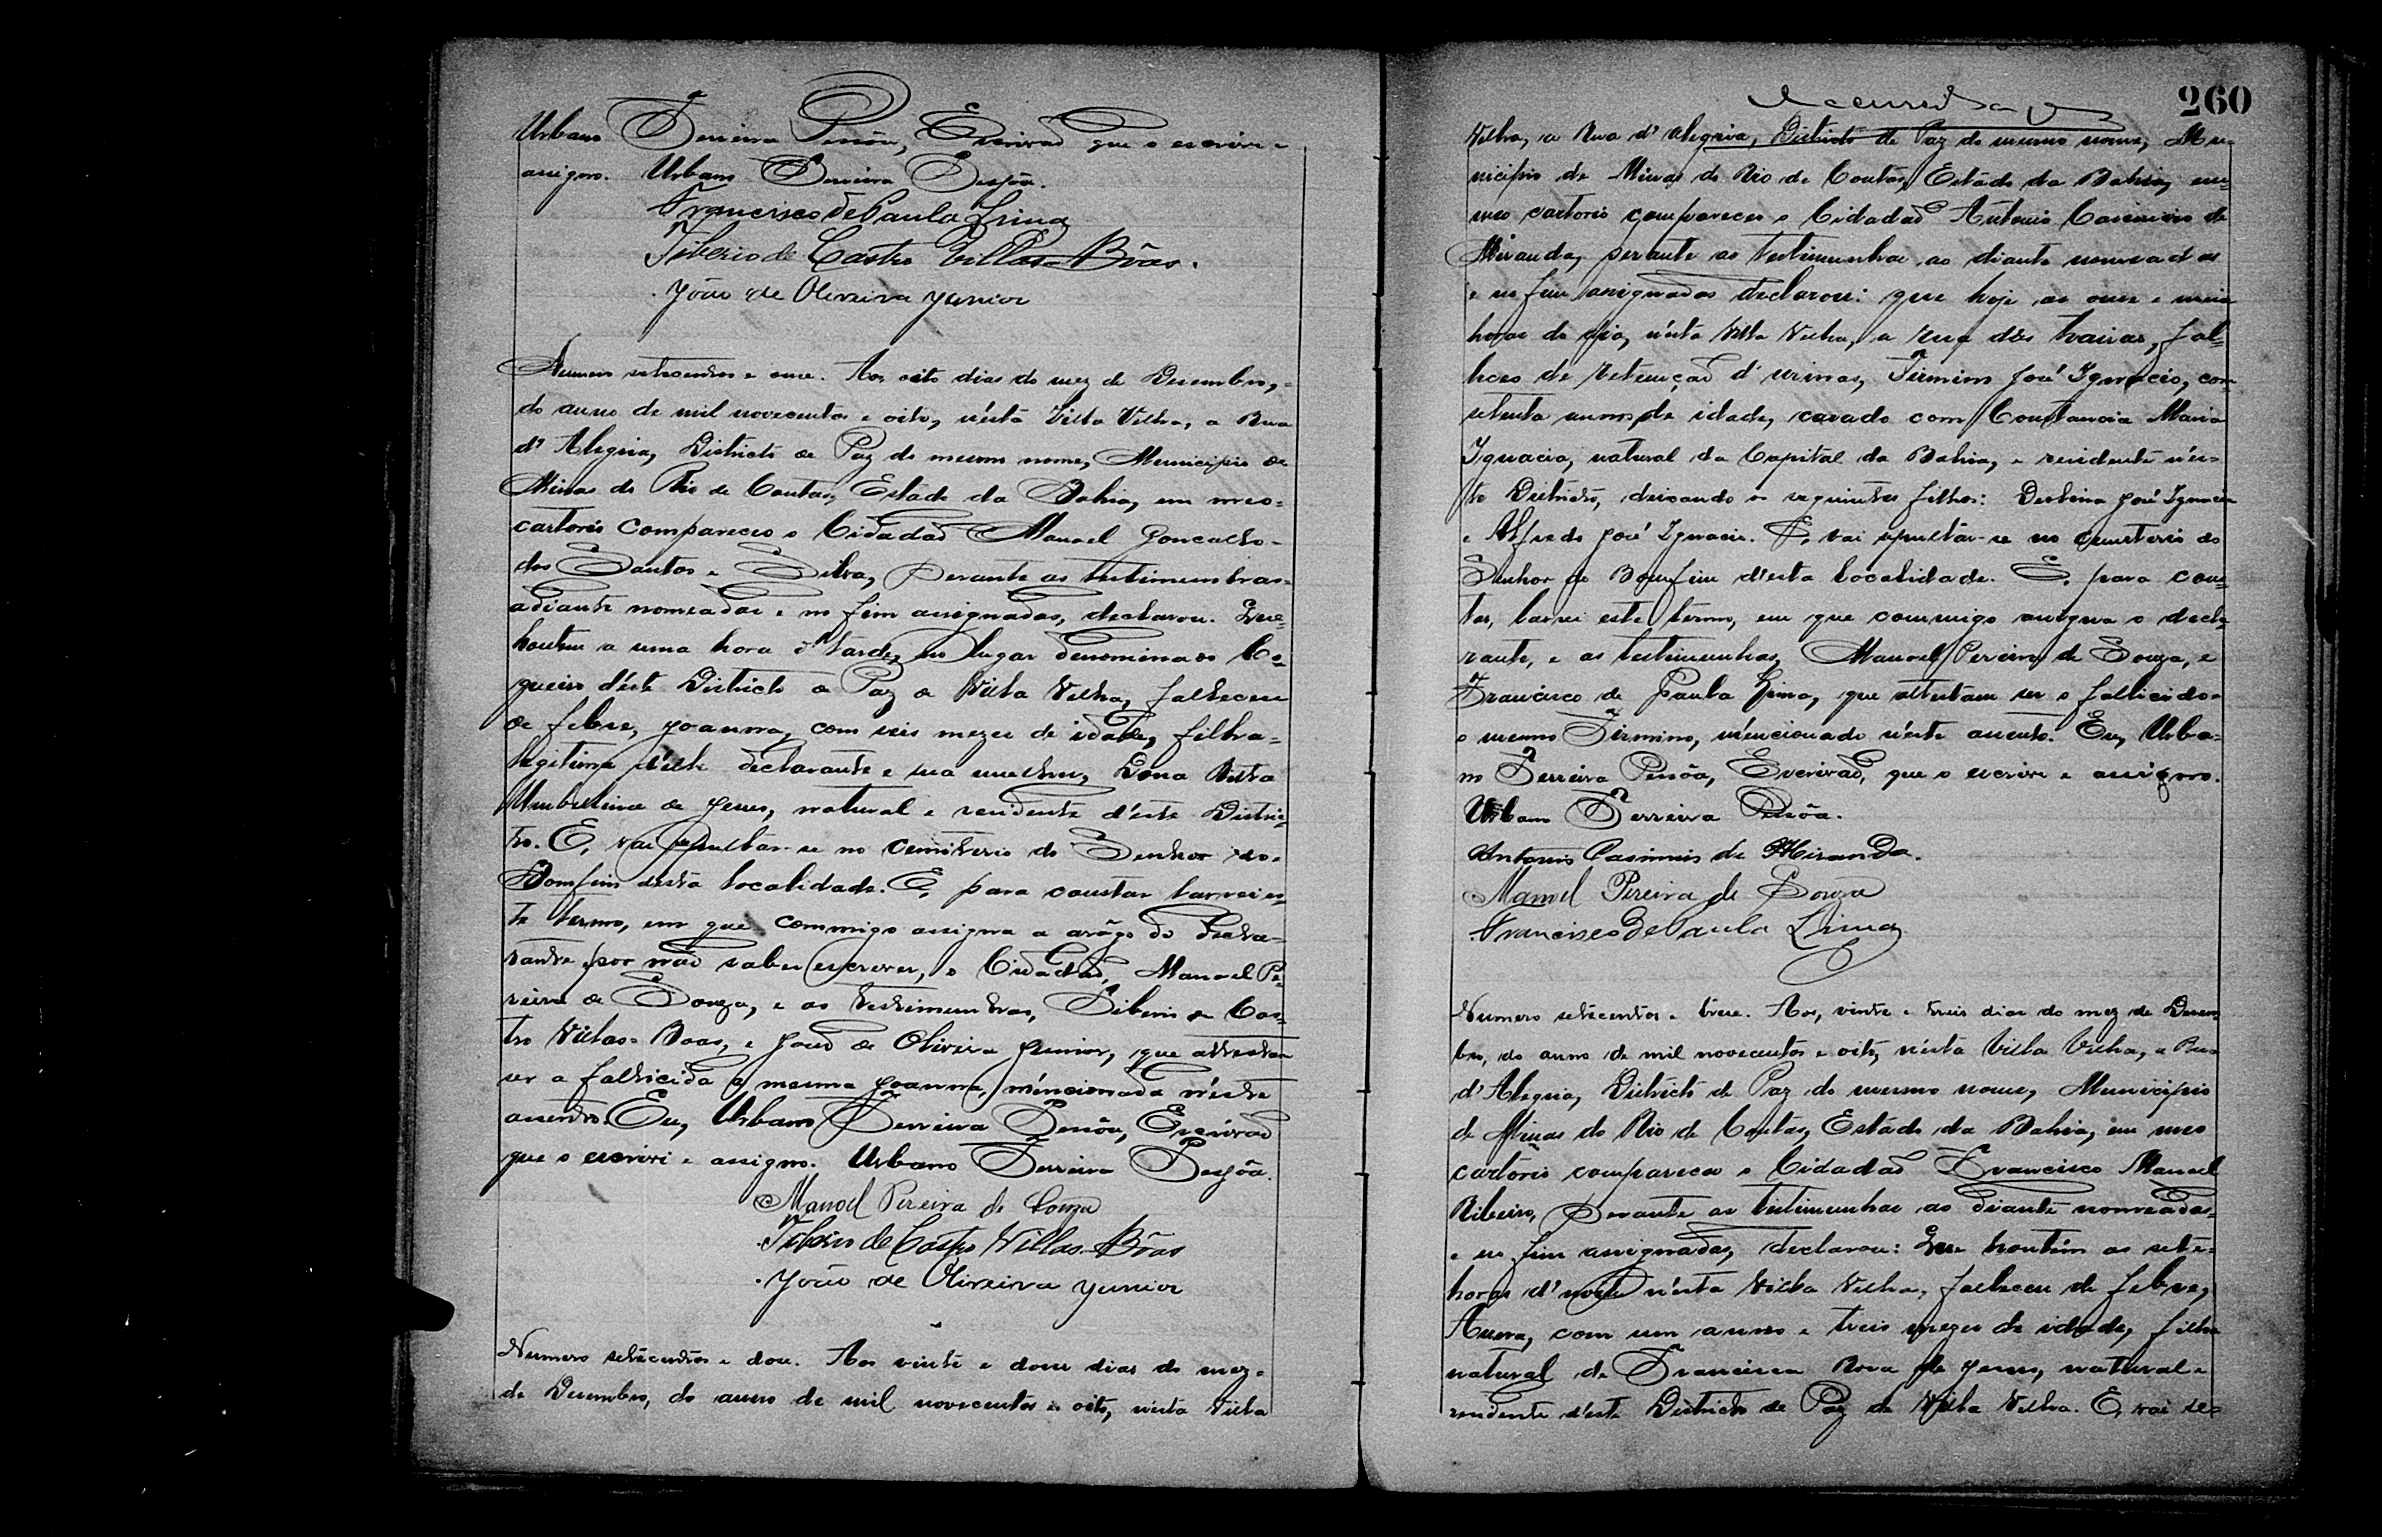 Urbano Ferreira Pessôa, Escrivaõ que o escrivi e
assigno. Urbano Ferreira Pessôa.
Francisco de Paula Lima
Tiberio de Castro Villas-Bôas.
João de Oliveira Junior
Numero setecentos e onse. Aos oito dias do mez de Desembro,
do anno de mil novecentos e oito, n'esta Villa Velha, a Rua
d' Alegria, Districto de Paz do mesmo nome, Municipio de
Minas do Rio de Contas, Estado da Bahia, em meo
cartorio compareceo o Cidadaõ Manoel Goncalves
dos Santos e Silva, Perante as testimunhas
adiante nomeadas e no fim assignadas, declarou. Que
hontem a uma hora d' tarde, no lugar denominado Co-
queiro d'este Districto de Paz de Villa Velha, falleceu
de febre, Joanna, com seis mezes de idade, filha
legitima d'elle declarante e sua mulher, Dona
Umbelina de Jesus, natural e residente d'este Distric-
to. E, vai sepultar-se no cemiterio do Senhor do
Bomfim desta localidade. E, para constar lavrei es-
te termo, em que commigo assigna a arôgo do decla-
rante, por naõ saber escrever, o Cidadaõ, Manoel Pe-
reira de Souza, e as testimunhas, Tiberio de Cas-
tro Villas-Boas, e Joaõ de Oliveira Junior, que attestam
ser a fallicida a mesma Joanna, mencionada n'este
assento. Eu, Urbano Ferreira Pessôa, Escrivaõ
que o escrivi e assigno. Urbano Ferreira Pessôa.
Manoel Pereira de Souza
Tiberio de Castro Villas-Bôas
João de Oliveira Junior
Numero setecentos e dose. Aos vinte e dous dias do mez
de Desembro, do anno de mil novecentos e oito, nesta Villa
260
Velha, a Rua d' Alegria, Districto de Paz do mesmo nome, Mu-
nicipio de Minas do Rio de Contas, Estado da Bahia, em
meo cartorio compareceo o Cidadaõ Antonio Casimiro de
Miranda, perante as testimunhas ao diante nomeadas
e no fim assignadas declarou: que hoje as onse e meia
horas do dia, n'esta Villa Velha, a rua das , fal-
leceo de retençaõ d' urinas, Firmino José Ignacio, com
setenta annos de idade, casado com Constancia Maria
Ignacia, natural da Capital da Bahia, e residente n'es-
te Districto, deixando os seguintes filhos: José Ignacio
e Alfredo José Ignacio. E, vai sepultar-se no cemiterio do
Senhor do Bomfim d'esta localidade. E, para cons-
tar, lavrei este termo, em que commigo assigna o decla-
rante, e as testimunhas, Manoel Pereira de Souza, e
Francisco de Paula Lima, que attestam ser o fallicido
o mesmo Firmino, mencionado n'este assento. Eu, Urba-
no Ferreira Pessôa, Escrivaõ, que o escrivi e assigno.
Urbano Ferreira Pessôa.
Antonio Casimiro de Miranda.
Manoel Pereira de Souza
Francisco de Paula Lima
Numero setecentos e trese. Aos, vinte e treis dias do mez de Desem-
bro, do anno de mil novecentos e oito, n'esta Villa Velha, a Rua
d' Alegria, Districto de Paz do mesmo nome, Municipio
de Minas do Rio de Contas, Estado da Bahia, em meo
cartorio compareceo o Cidadaõ Francisco Manoel
Ribeiro, Perante as testimunhas ao diante nomeadas
e no fim assignadas, declarou: Que hontem as sete
horas d' noite n'esta Villa Velha, falleceu de febre,
Anna, com um anno e treis mezes de idade, filha
natural de Francisca Rosa de Jesus, natural e
residente d'este Districto de Paz de Villa Velha. E, vai se-